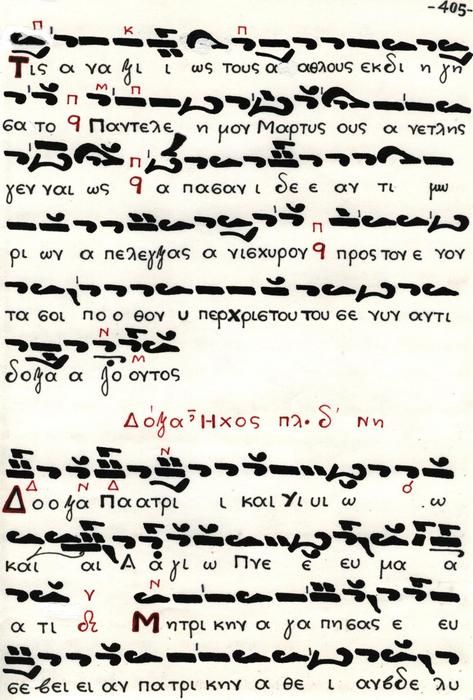 -405-
Π Κ Π
Τις α να ξι ι ως τους α αθλους εκδι η γη
Μ Π
σα το q Παντελε η μον Μαρτυς ους α νετλης
γεν ναι ως q α πασαν ι δε ε αν τι μω
ρι ων α πελεγξας α νισχυρον q προς τον ε νον
τα σοι πο ο θον υ περχριστου του σε νυν αντι
Ν Μ
δοξα α ζο οντος
Δόξα Ηχος πλ. δ' Νη
Δ Ν Δ Ν
Δο ο ξα Πα ατρι ι και γι υι ω ω
και αι Α α γι ω Πνε ε ευ μα α
ν Ν
α τι Μητρι κην α γα πησας ε ευ
σε βει ει αν πατρι κην α θε ι ανβδε λυ